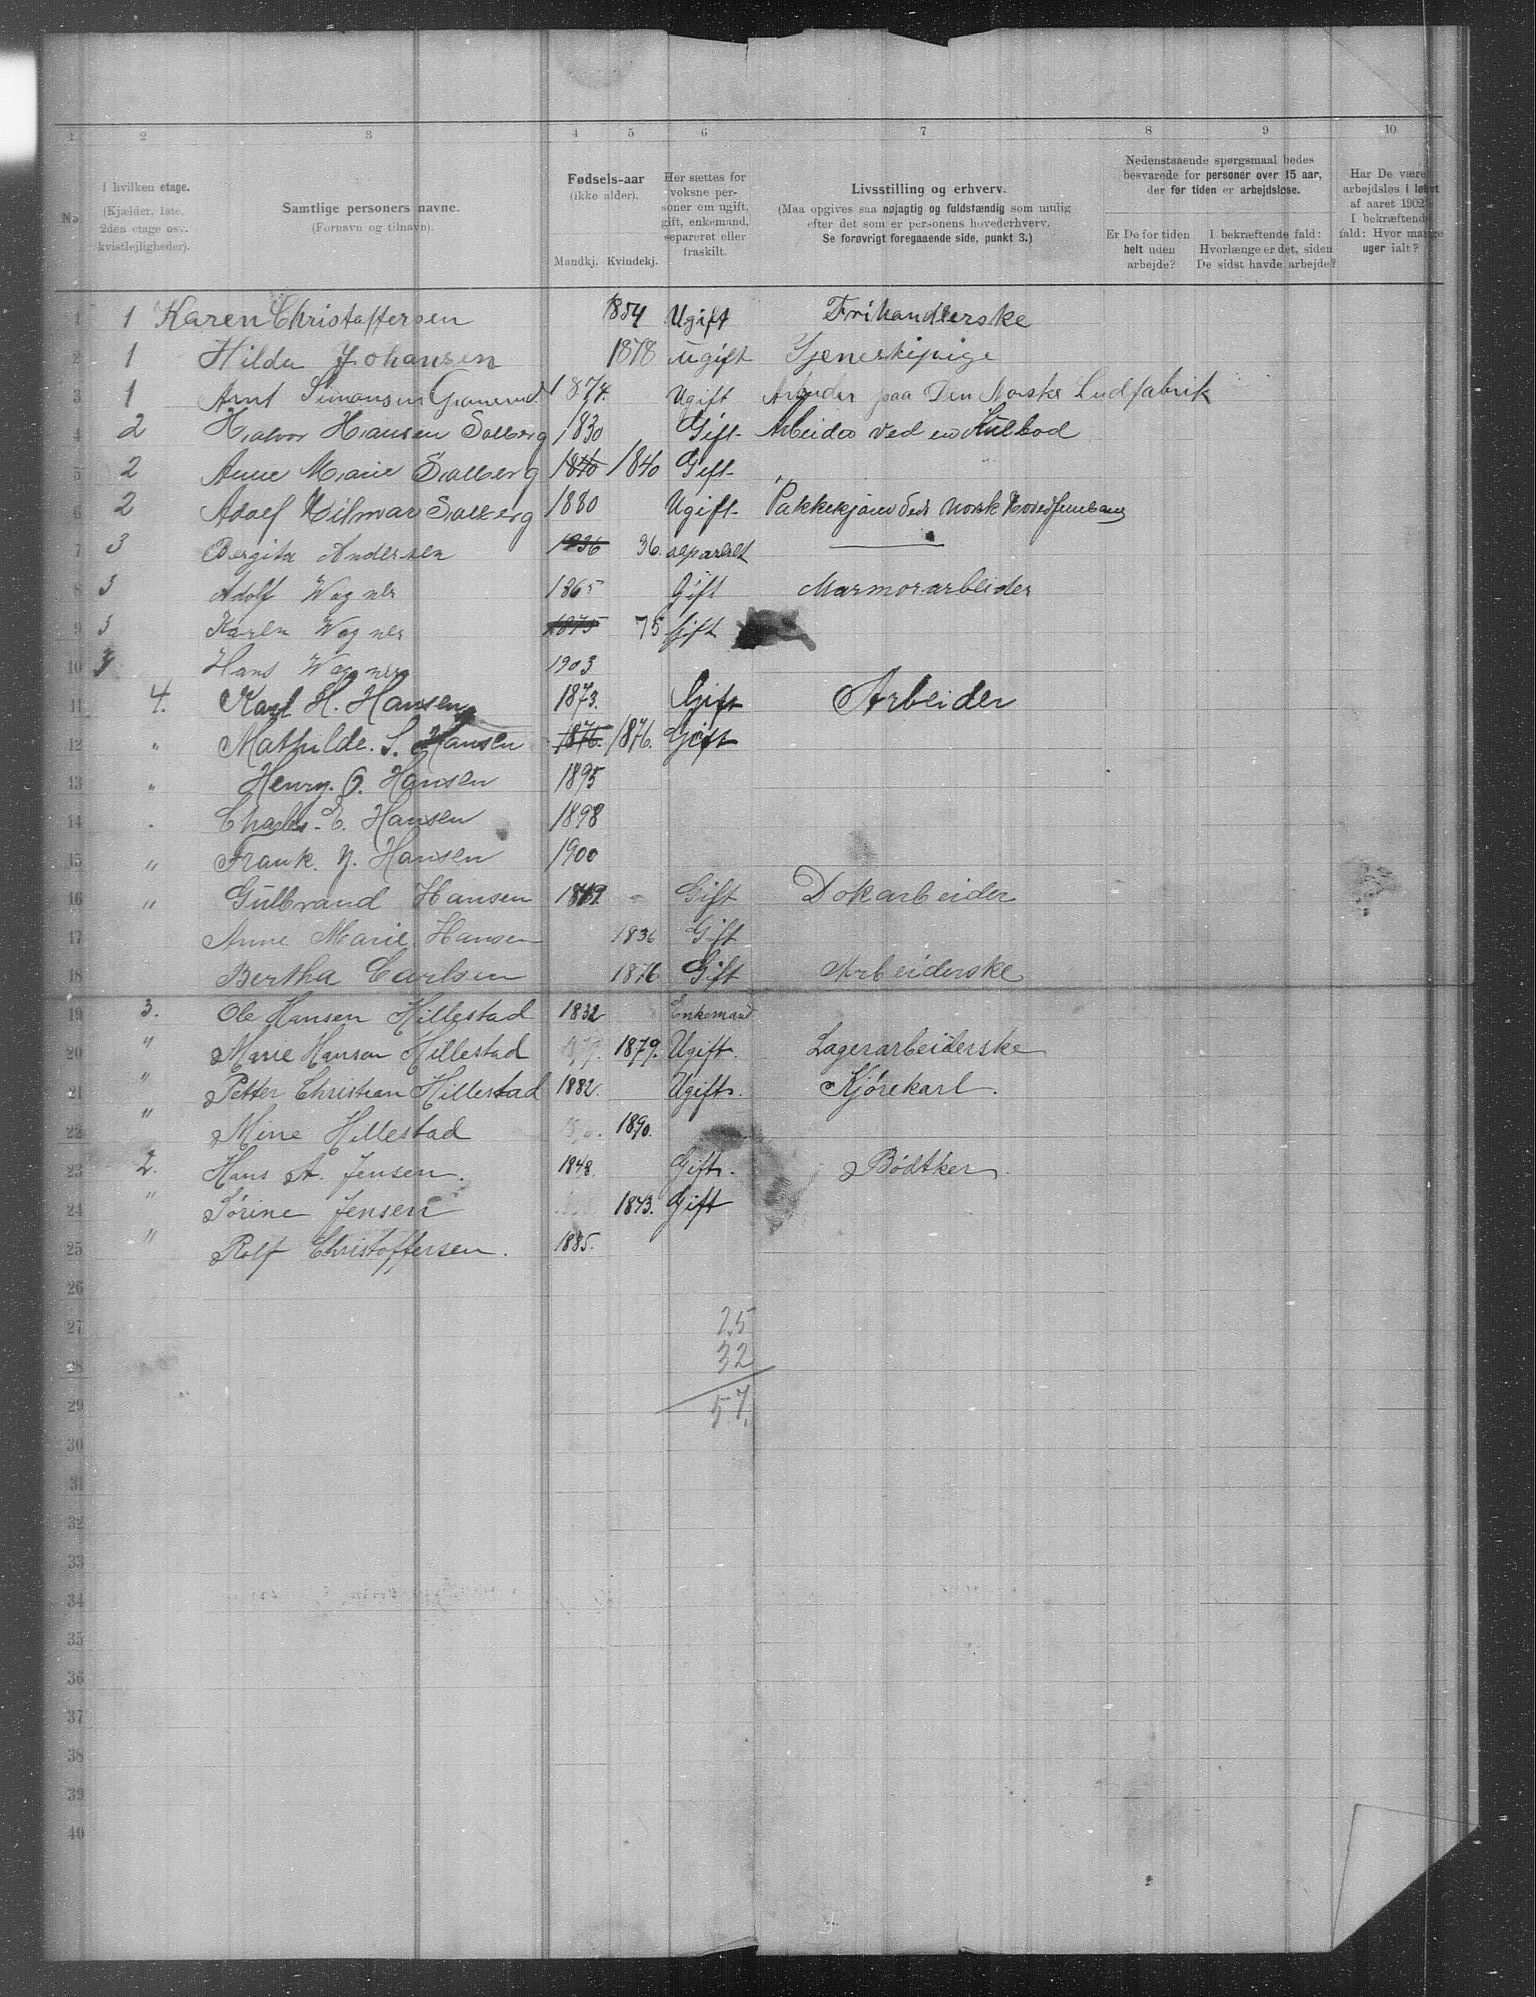 1 2 3 4 5 6 7 8 9 10
No.
I hvilken etage.
(Kjælder, 1ste.
2den etage osv.
kvistlejligheder).
Samtlige personers navne.
(Fornavn og tilnavn).
Fødsels-aar
(ikke alder).
Mandkj. Kvindekj.
Her sættes for
voksne per-
soner om ugift,
gift, enkemand,
separeret eller
fraskilt.
Livsstilling og erhverv.
(Maa opgives saa nøjagtig og fuldstændig som mulig
efter det som er personens hovederhverv.
Se forøvrigt foregaaende side, punkt 3.)
Nedenstaaende spørgsmaal bedes
besvarede for personer over 15 aar,
der for tiden er arbejdsløse.
Er De for tiden
helt uden
arbejde?
I bekræftende fald:
Hvorlænge er det, siden
De sidst havde arbejde?
Har De være
arbejdsløs i løbet
af aaret 1902
I bekræftende
fald: Hvor mange
uger ialt?
1 1 Karen Christoffersen 1854 Ugift Frihandlerske
2 1 Hilda Johansen 1878 ugift
3 1 Arnt Simonsen 1874. Ugift Arbeider paa Den Norske Ludfabrik
4 2 Halvor Hansen Solberg 1830 Gift- Arbeider ved en Kulbod
5 2 Anne Marie Solberg 1840 1840 Gift-
6 2 Adolf Hilmar Solberg 1880 Ugift-
7 3 Bergita Andersen 1836 36 separert
8 3 Adolf Wagner 1865 Gift Marmorarbeider
9 3 Karen Wagner 1875 75 Gift
10 3 Hans Wagner 1903
11 4. Karl H. Hansen 1873. Gift Arbeider
12 " Mathilde. S. Hansen 1876. 1876. Gift
13 " Henry. O. Hansen 1895
14 . Charles. E. Hansen 1898
15 " Frank. Y. Hansen 1900
16 " Gulbrand Hansen Gift Dokarbeider
17 Anne Marie Hansen 1836 Gift
18 Bertha Carlsen 1876 Gift Arbeiderske
19 3. Ole Hansen Hillestad 1832 Enkemand
20 " Marie Hansen Hillestad 1879. Ugift. Lagerarbeiderske
21 " Petter Christian Hillestad 1882. Ugift. Kjørekarl.
22 " Mine Hillestad 1890.
23 2. Hans A. Jensen. 1848. Gift. Bødtker.
24 " Sørine Jensen 1843. Gift
25 " Rolf Christoffersen. 1885.
26
27 25
28 32
29 57.
30
31
32
33
34
35
36
37
38
39
40